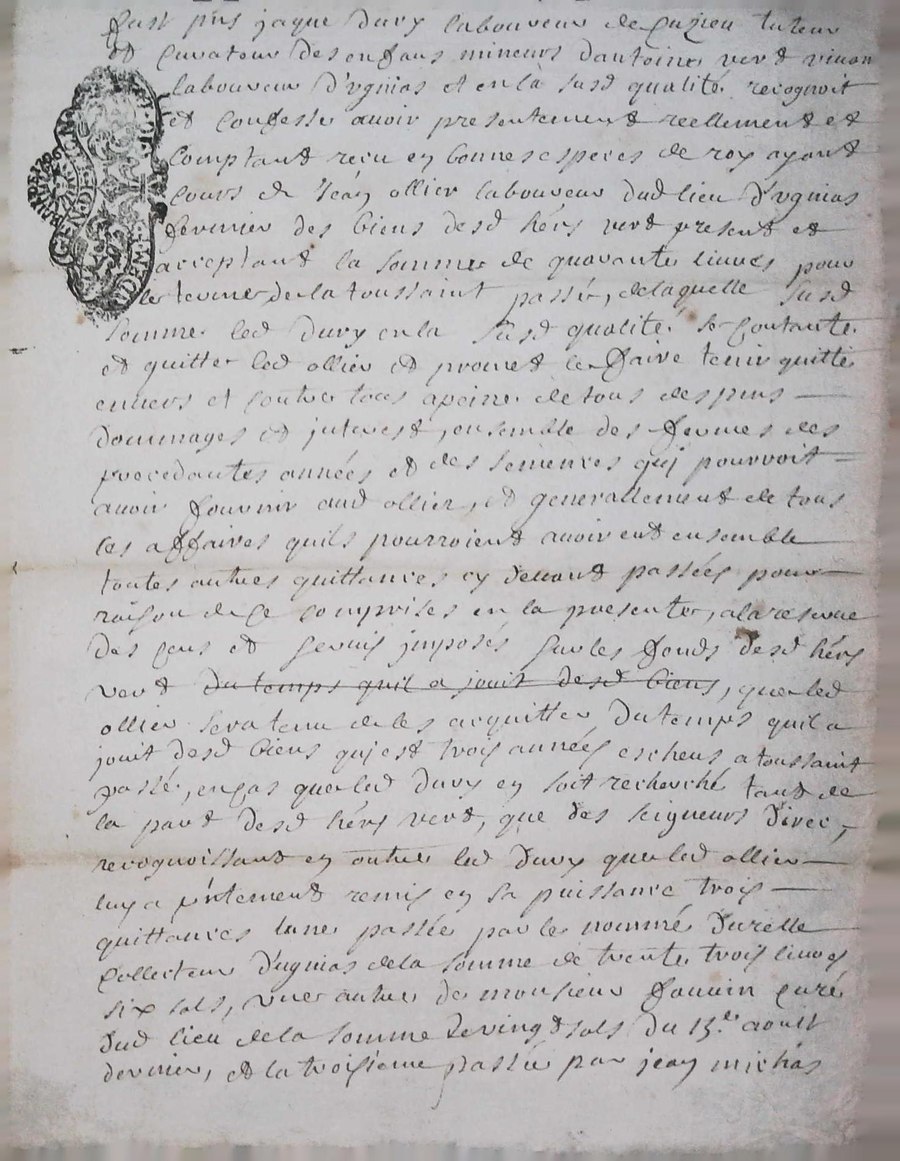 fust pns jaque Duvy laboureur de Cuzieu tuteur
et Curateur des enfans mineurs dantoine verd vivan
laboureur D'ugnias et en la susd qualité recognoit
et Confesse avoir presentement reellement et
Comptant reçu en bonnes especes de roy ayant
cours de Jean ollier laboureur dud lieu D'ugnias
fermier des biens desd hers verd present et
acceptant la somme de quarante livres pour
le terme de la toussaint passé, de laquelle susd
somme led Duvy en la susd qualité se contante
et quitte led ollier et promet le faire tenir quitte
envers et contre tous a peine de tous despens
Dommages et interest, ensemble des fermes des
precedantes années et des semences qui pourroit
avoir fournir aud ollier, et generallement de tous
les affaires quils pourroient avoir eut ensemble
toutes autres quittances cy devant passées pour
raison de ce comprises en la presente, a la reserve
Des cens et servis jmposés sur les fonds desd hers
verd du temps quil a jouit desd biens, que led
ollier sera tenu de les acquitter Du temps quil a
jouit desd biens qui est trois années escheus a toussaint
passé, en cas que led Duvy en soit recherché tant de
la part desd hers verd, que des seigneurs Direc,
recognoissant en outre led Duvy que led ollier
luy a pntement remis en sa puissance trois
quittances lune passée par le nommé Durelle
Collecteur D'ugnias de la somme de trente trois livres
six sols, une autre de monsieur curé
Dud lieu de la somme de vingt sols du 15.e aoust
dernier, et la troisieme passée par jean michas
GEN DE LION